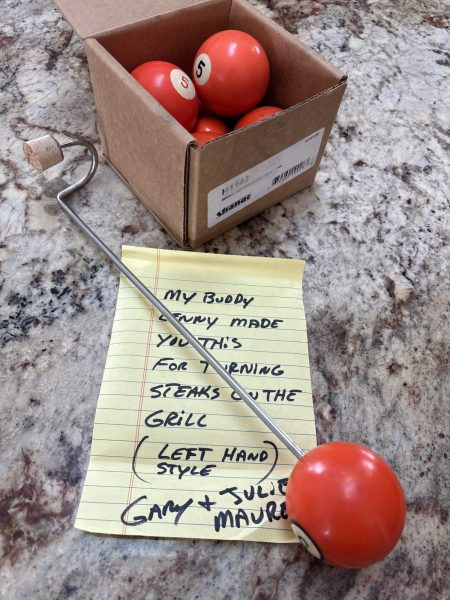 5
5
H1143
MY BUDDY
LENNY MADE
YOU THIS
FOR TURNING
STEAKS ON THE
GRILL
(LEFT HAND
STYLE)
GARY + JULIE